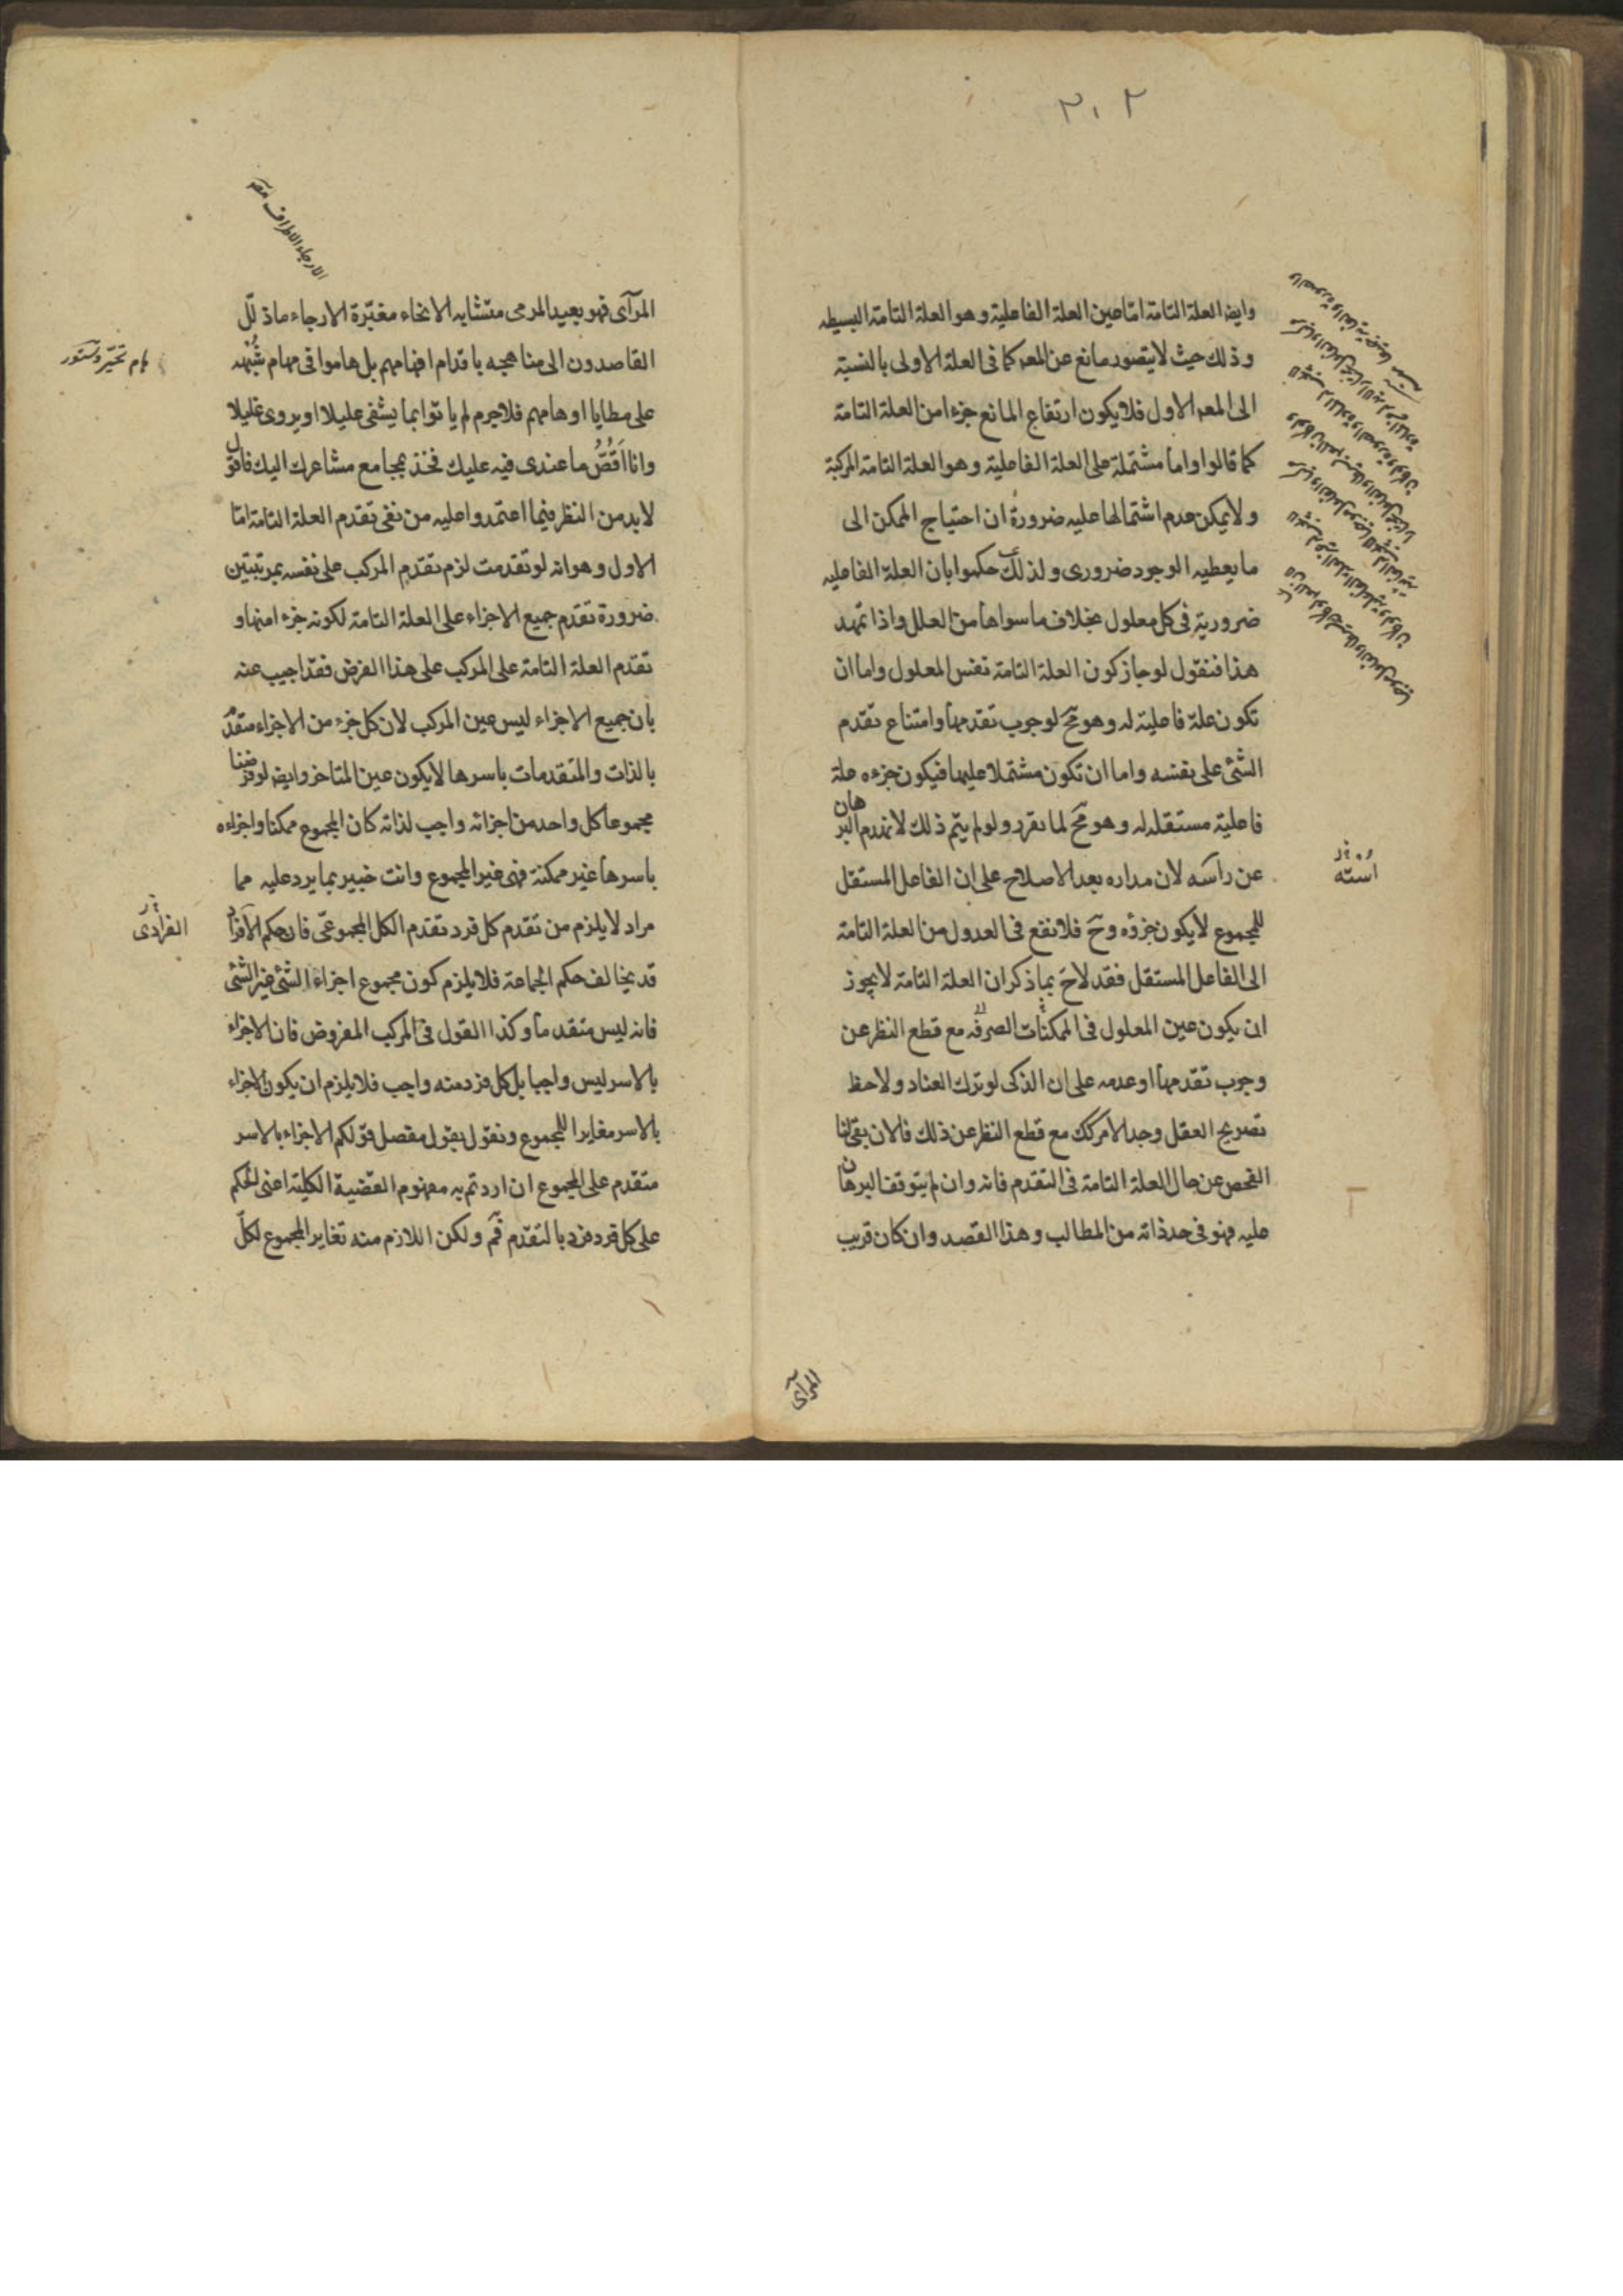 ٣٠٢
وايضا العلة التامة اما عين العلة الفاعلية وهو العلة التامة البسيطه
وذلك حيث لا يتصور مانع عن المعه كما فى العلة الاولى بالنسبة
الى المعه الاول فلا يكون ارتفاع المانع جزءا من العلة التامة
كما قالوا واما مشتملة على العلة الفاعلية وهو العلة التامة المركبة
ولا يمكن عدم اشتمالها عليه ضرورة ان احتياج الممكن الى
ما يعطيه الوجود ضرورى ولذلك حكموا بان العلة الفاعليه
ضرورية فى كل معلول بخلاف ما سواها من العلل واذا تمهد
هذا فنقول لو جاز كون العلة التامة نفس المعلول واما ان
تكون علة فاعلية له وهو مح لوجوب تقدمها وامتناع تقدم
الشئ على نفسه واما ان تكون مشتملا عليها فيكون جزءه علة
فاعلية مستقله له وهو مح لما تقرر ولو لم يتم ذلك لانهدم البرهان
عن راسه لان مداره بعد الاصلاح على ان الفاعل المستقل
للمجموع لا يكون جزؤه وح فلا نفع فى العدول من العلة التامة
الى الفاعل المستقل فقد لاح بما ذكر ان العلة التامة لا يجوز
ان يكون عين المعلول فى الممكنات الصرفه مع قطع النظر عن
وجوب تقدمها او عدمه على ان الذكى لو ترك العناد ولاحظ
تصريح العقل وجد الامر كك مع قطع النظر عن ذلك فالان بقى لنا
الفحص عن حال العلة التامة فى التقدم فانه وان لم يتوقف البرهان
عليه فهو فى حد ذاته من المطالب وهذا القصد وان كان قريب
المرآى
اسنه
المرآى فهو بعيد المرمى متشابه الانحاء مغبّرة الارجاء ماذلّل
القاصدون الى مناهجه باقدام افهامهم بل هاموا فى مهام شُبَهه
على مطايا اوهامهم فلا جرم لم ياتوا بما يشفى عليلا او يروى غليلا
وانا اَقُصُّ ما عندى فيه عليك فخذ بمجامع مشاعرك اليك فاقول
لابد من النظر فيما اعتمدوا عليه من نفى تقدم العلة التامة اما
الاول وهو انه لو تقدمت لزم تقدم المركب على نفسه بمرتبتين
ضرورة تقدم جميع الاجزاء على العلة التامة لكونه جزءا منها و
تقدم العلة التامة على المركب على هذا الفرض فقد اجيب عنه
بان جميع الاجزاء ليس عين المركب لان كل جزء من الاجزاء متقدم
بالذات والمتقدمات باسرها لا يكون عين المتاخر وايضا لو فرضنا
مجموعا كل واحد من اجزائه واجب لذاته كان المجموع ممكنا واجزاءه
باسرها غير ممكنة فهى غير المجموع وانت خبير بما يرد عليه مما
مراد لا يلزم من تقدم كل فرد تقدم الكل المجموعى فان حكم الافراد
قد يخالف حكم الجماعة فلا يلزم كون مجموع اجزاء الشئ غير الشئ
فانه ليس متقدما وكذا القول فى المركب المفروض فان الاجزاء
بالاسر ليس واجبا بل كل فرد منه واجب فلا يلزم ان يكون الاجزاء
بالاسر مغايرا للمجموع ونقول بقول مفصل قولكم الاجزاء بالاسر
متقدم على المجموع ان اردتم به مفهوم القضية الكلية اعنى الحكم
على كل فرد فرد بالتقدم فم ولكن اللازم منه تغاير المجموع لكلّ
الارجاء الاطراف
هام تحيّر
الفرادى